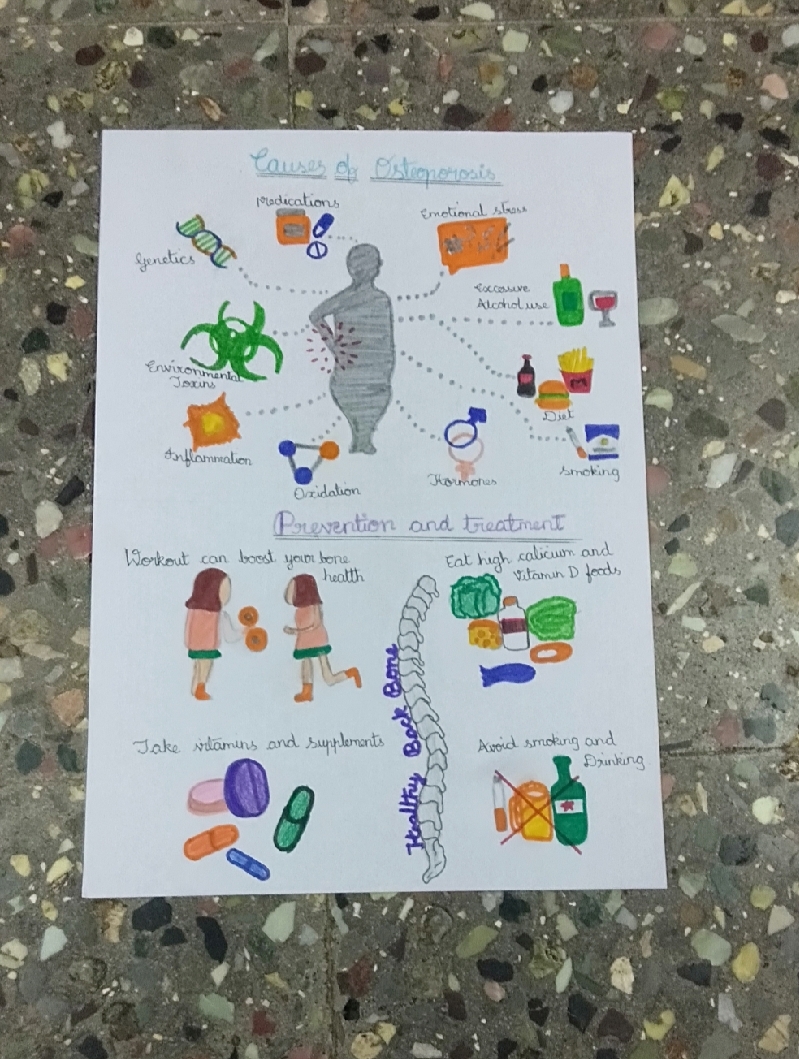 Causes of Osteoporosis
Medications
Emotional stress
Genetics
Excessive
Alcohol use
Environmental
Toxins
Diet
Inflammation
Oxidation
Hormones
Smoking
Prevention and treatment
Workout can boost your bone
health
Eat high calicium and
Vitamin D foods
Healthy Back Bone
Take vitamins and supplements
Avoid smoking and
Drinking